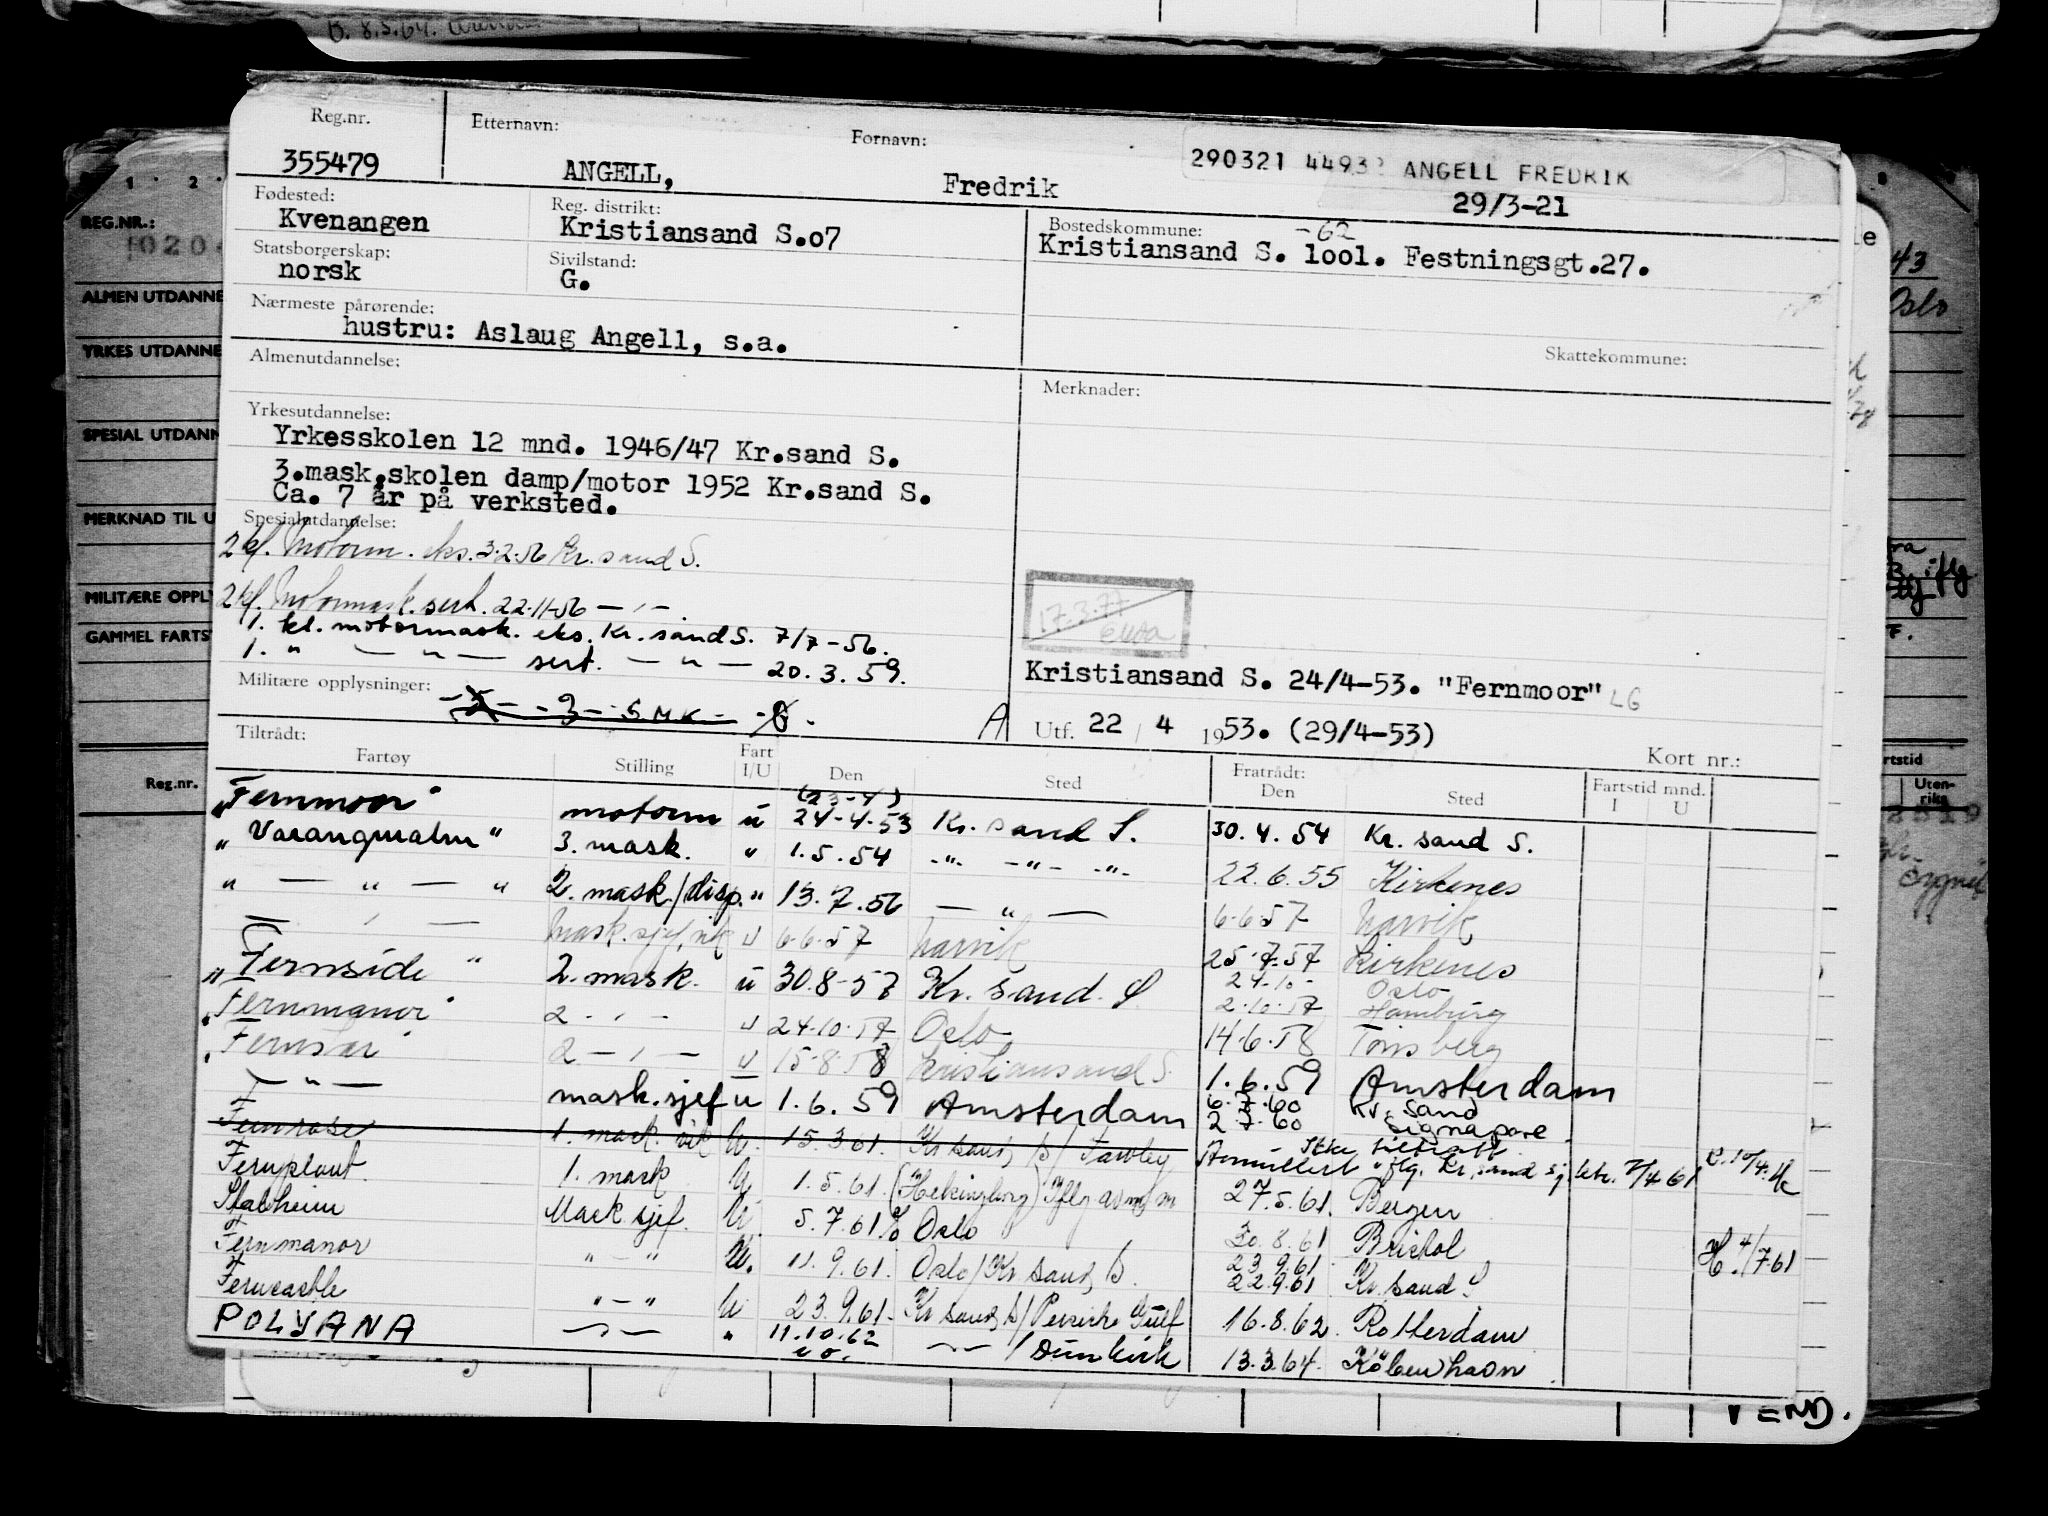 B. 8.5.64.
Reg.nr. Etternavn: Fornavn:
355479 ANGELL, Fredrik 290321 4493 ANGELL FREDRIK
29/3-21
Fødested: Reg. distrikt: Bostedskommune: -62
Kvenangen Kristiansand S.o7 Kristiansand S. lool. Festningsgt.27.
Statsborgerskap: Sivilstand:
norsk G.
Nærmeste pårørende:
hustru: Aslaug Angell, s.a.
Skattekommune:
Almenutdannelse: Merknader:
Yrkesutdannelse:
Yrkesskolen 12 mnd. 1946/47 Kr.sand S.
3.mask.skolen damp/motor 1952 Kr.sand S.
Ca. 7 år på verksted.
Spesialutdannelse:
2 kl. Motorm. eks. 3.2.56 Kr. sand S.
2 kl. Motormask. sert. 22-11-56 — " —
1. kl. motormask. eks. Kr. sand S. 7/7-56.
1. " — " — sert. — " — 20.3.59.
17.3.77
Kristiansand S. 24/4-53. "Fernmoor" LG
Militære opplysninger:
A Utf. 22 / 4 1953. (29/4-53)
Kort nr.:
Tiltrådt: Fratrådt: Fartstid mnd.
Fartøy Stilling Fart I/U Den Sted Den Sted I U
"Fernmoor" motorm u (23-4) 24-4-53 Kr. sand S. 30.4.54 Kr. sand S.
"Varangmalm" 3. mask. " 1.5.54 -"- -"- -"- 22.6.55 Kirkenes
" — " — " 2. mask/disp. " 13.7.56 — " — 6.6.57 Narvik
— " — Mask.sjef, vik u 6.6.57 Narvik 25.7.57 Kirkenes
"Fernside" 2. mask. u 30.8-57 Kr. sand. S 24-10- Oslo
2.10.57 Hamburg
"Fernmanor" 2 - " - u 24.10.57 Oslo 14.6.58 Tønsberg
2 — " — u 15.8.58 Kristiansand S. 1.6.59 Amsterdam
— " — mask.sjef u 1.6.59 Amsterdam 6.7.60 Kr. Sand
2.7.60 Signapore
Fernrose 1. mask. vik U. 15.3.61. Kr sand S/ Fawley Ikke tiltrått
Annullert iflg. Kr. sand sj.ktr. 7/4 61
Fernplant 1. mask U 1.5.61. 27.5.61. Bergen
Stalheim Mask sjef. U 5.7.61 Oslo 30.8.61 Bristol H. 4/7.61
Fernmanor " — " U. 11.9.61. Oslo/Kr sand S. 23.9.61.
22.9.61 Kr. sand S
Ferncastle " — " U 23.9.61. Kr sand S/Persiske Gulf 16.8.62. Rotterdam
POLYANA — " — " 11.10.62 — " — / Dunkirk 13.3.64. København
VEND.
REG.NR.:
ALMEN UTDANNE
YRKES UTDANNE
SPESIAL UTDANN
MERKNAD TIL U
MILITÆRE OPPLY
GAMMEL FARTS
Reg.nr.
43
Oslo
rtstid
Uten-
riks